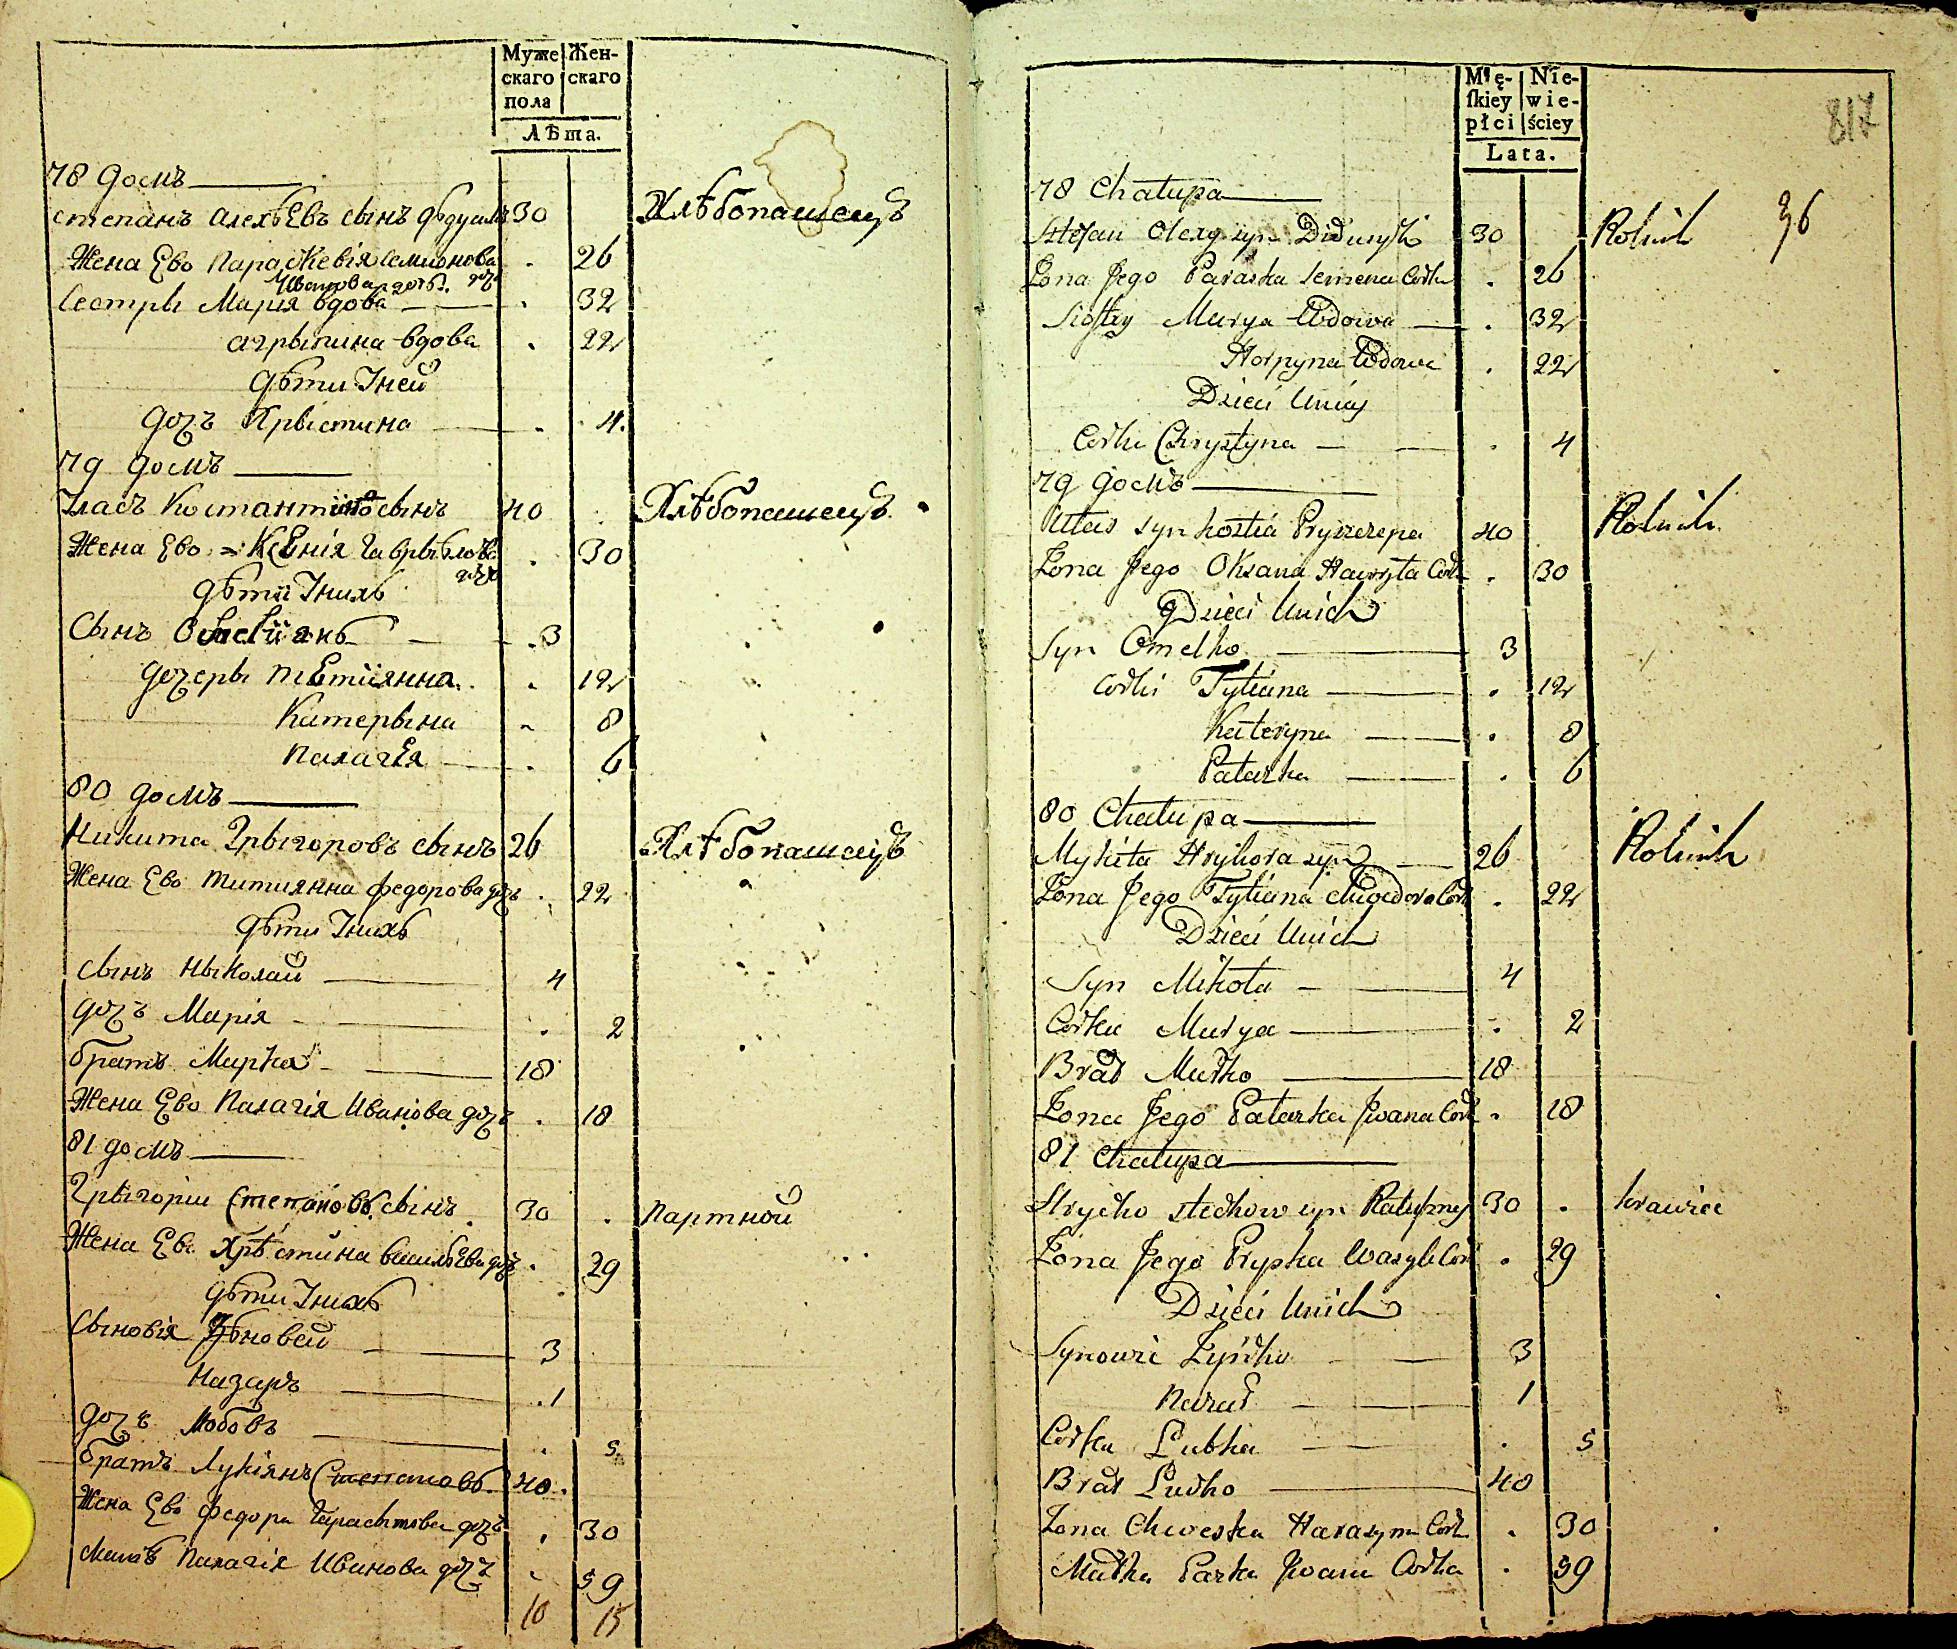 Муже Жен-
скаго скаго
пола
Лѣта.
78 домъ
степанъ алехѣевъ сынъ 30 Хлѣбопашецъ
Жена Ево Параскевія Семионова доч . 26
Ивановы дочб.
Сестры Марія вдова . 32
агрыпина вдова . 22
дѣти Уней
дочъ Хрыстина . 4.
79 домъ
Уласъ Костантин сынъ 40 . Хлѣбопашецъ.
Жена Ево Ксенія Гаврыблова дочъ . 30
дѣти Унихъ
Сынъ .3
дочеры тетіянна . 12
Катерына 8
палагея . 6
80 домъ
Никита Грыгоровъ сынъ 26 Хлѣбопашецъ
Жена Ево титиянна федорова дочъ . 22
дѣти Унихъ
сынъ ныколай 4
дочъ Марія . 2
братъ Марко 18
Жена Ево Палагія Иванова дочъ . 18
81 домъ
Грыгории Степановъ сынъ 30 . партной
Жена Ево Хрыстина васильева дочъ . 29
дѣти Унихъ
Сыновія Зѣновей 3
назаръ .1
дочъ Любовъ . 5
братъ Лукіянъ Степановъ 40.
Жена Ево федора Гарасымова дочъ . 30
мать палагія Иванова дочъ 59
10 15
Mię- Nie-
ſkiey wie-
płci ściey
Lata.
817
96
78 Chałupa
Stefan Olexy syn Diduryk 30 Rolnik
Żona Jego Paraska Semena Corka . 26
Siostry Marya Wdowa . 32
Horpyna Wdowa . 22
Dzieci Uniey
Corka Chrystyna . 4
79 домъ
Ułas syn Kostia Pryszczepa 40 Rolnik
Żona Jego Oksana Hawryła Cork . 30
Dzieci Unich
Syn Omelko 3
Corki Tytiana . 12
Kateryna . 8
Pałazka . 6
80 Chałupa
Mykita Hryhora syn 26 Rolnik
Żona Jego Tytiana Chwedora Cork . 22
Dzieci Unich
Syn Mikoła 4
Corka Marya . 2
Brat Marko 18
Żona Jego Pałazka Iwana Cork . 18
81 Chałupa
Hryćko Stećkow syn Ratuszny 30 . Krawiec
Żona Jego Pryska Wasyla Cor . 29
Dzieci Unich
Synowie Zyńko 3
Nazar 1
Corka Lubka . 5
Brat Lućko 40
Żona Chweska Harasyma Cork . 30
Matka Pazka Iwana Corka . 59